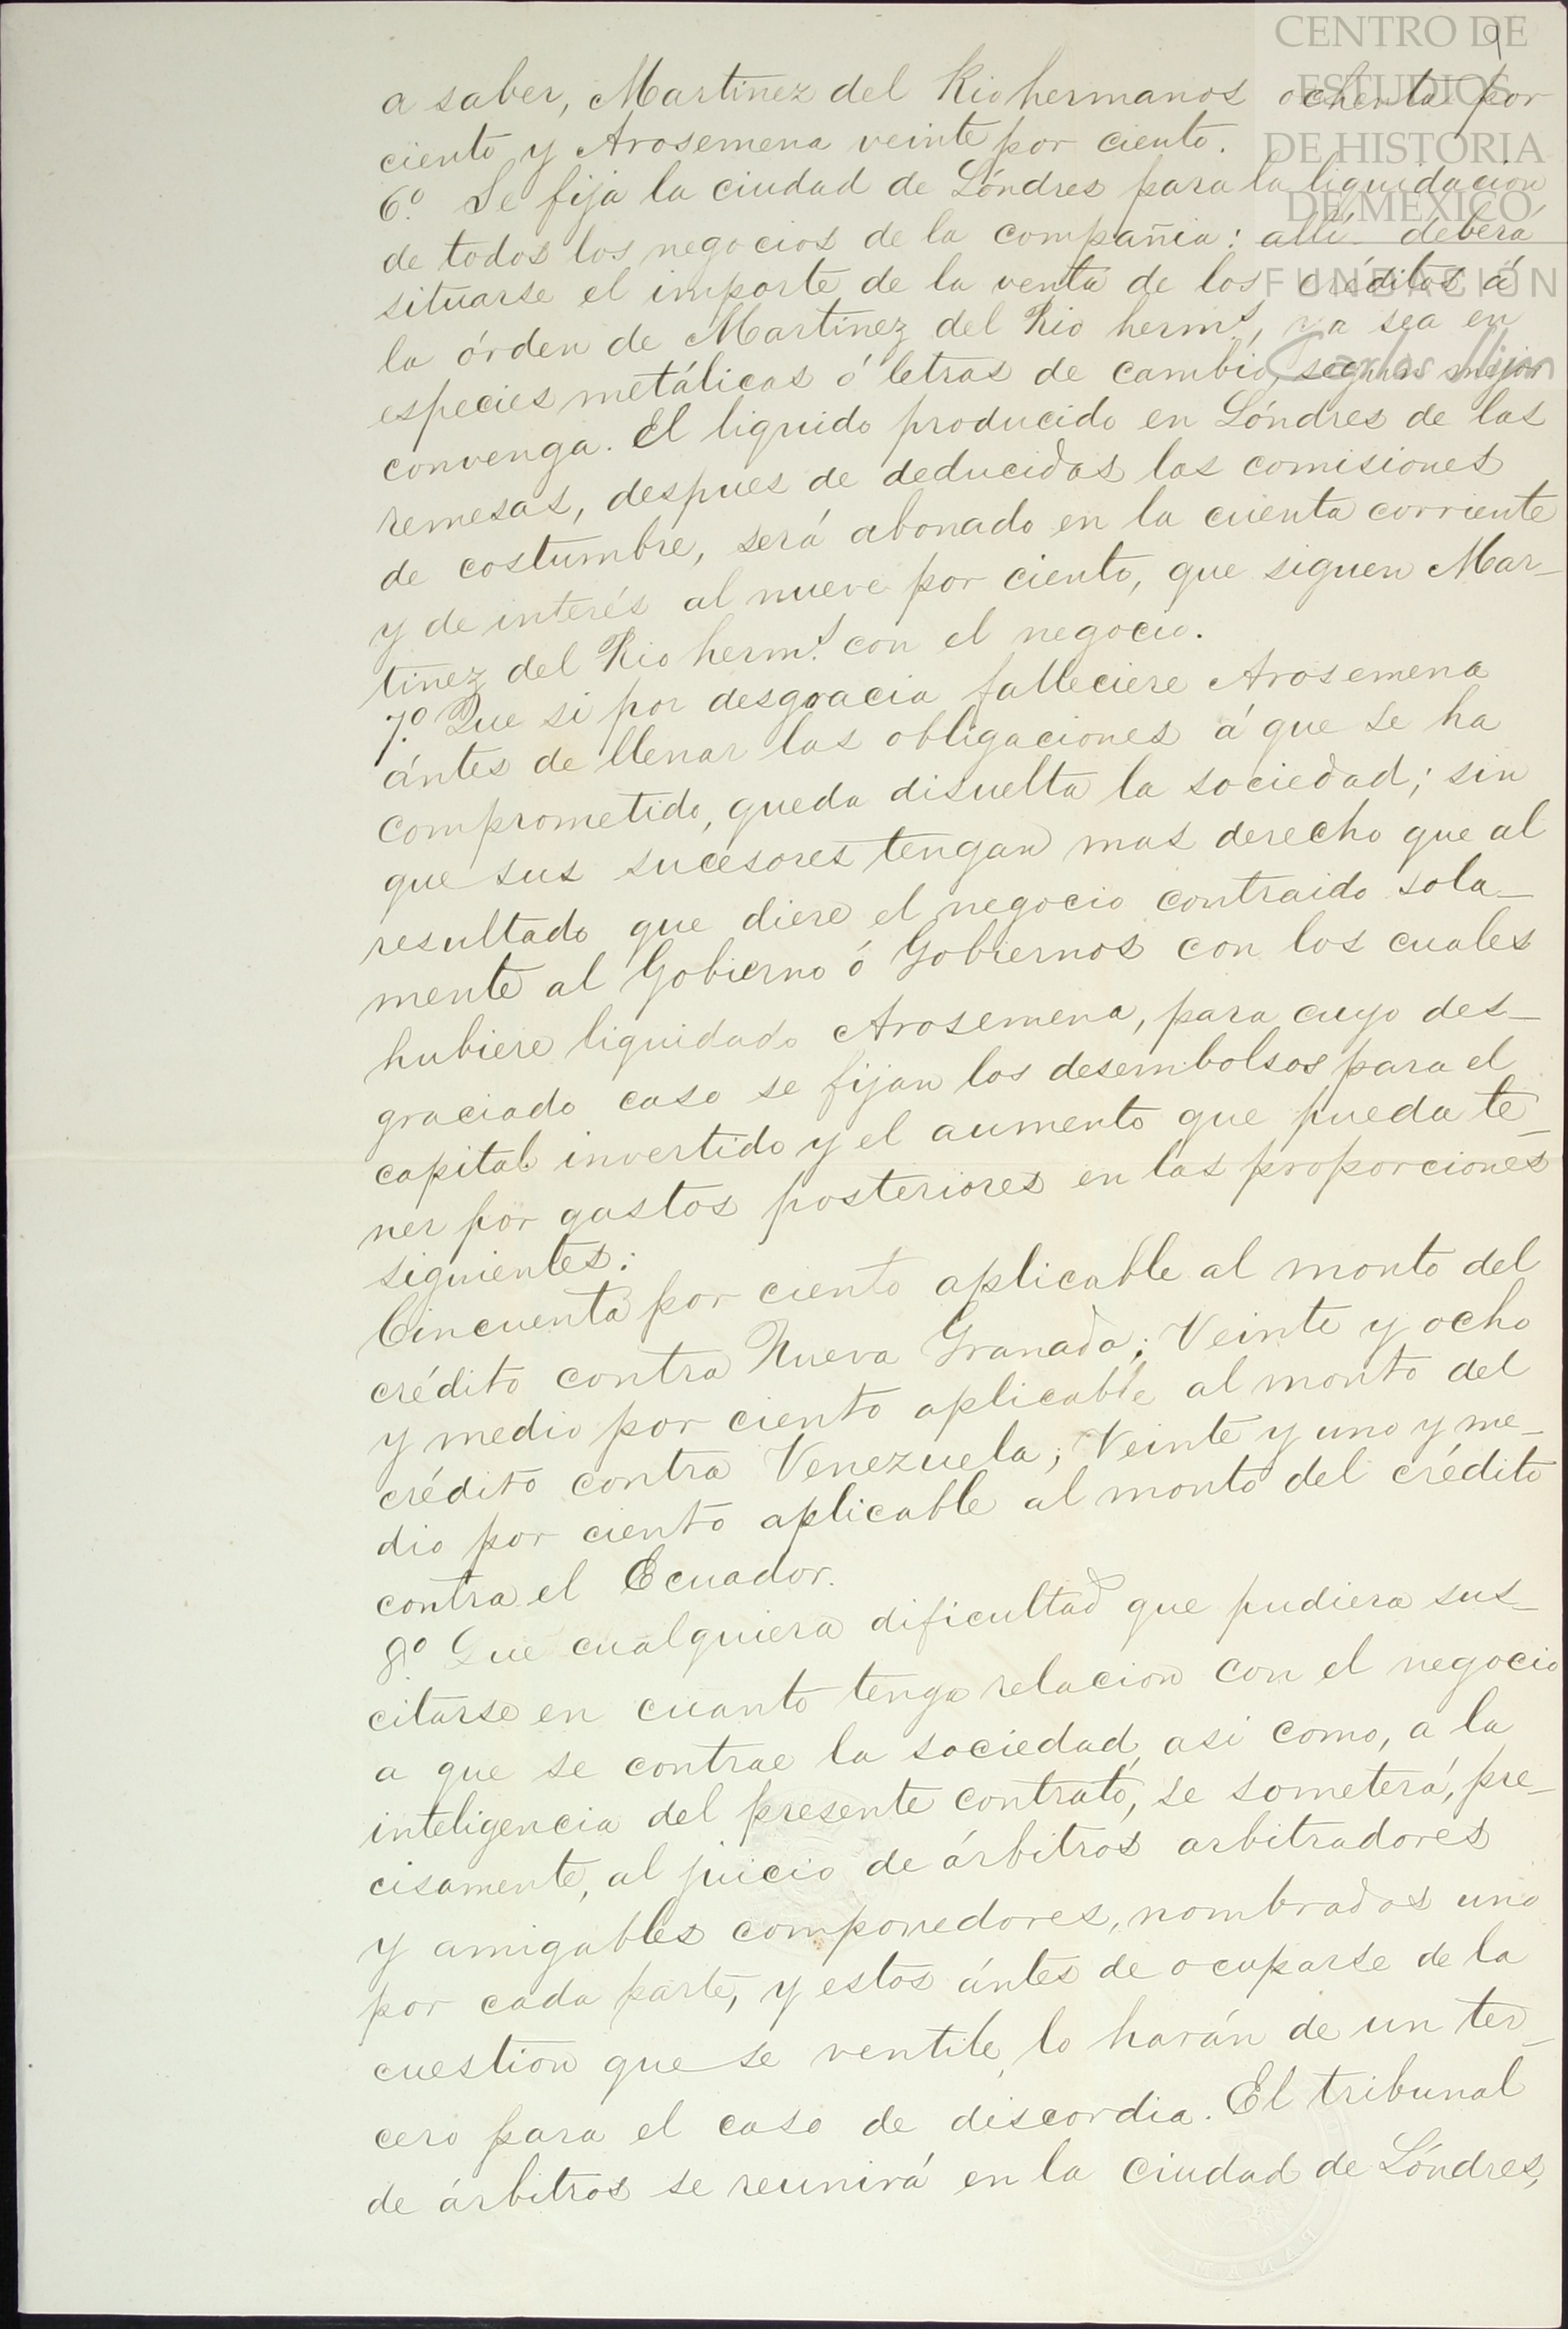 CENTRO DE
ESTUDIOS
DE HISTORIA
DE MÉXICO
FUNDACIÓN
Carlos Slim
9
a saber, Martinez del Rio hermanos ochenta por
ciento y Arosemena veinte por ciento.
6º. Se fija la ciudad de Lóndres para la liquidacion
de todos los negocios de la compañia: allí deberá
situarse el importe de la venta de los créditos á
la órden de Martinez del Rio herms, ya sea en
especies metálicas ó letras de cambio, segun mejor
convenga. El liquido producido en Lóndres de las
remesas, despues de deducidas las comisiones
de costumbre, será abonado en la cuenta corriente
y de interés al nueve por ciento, que siguen Mar-
tinez del Rio herms. con el negocio.
7º. Que si por desgracia falleciere Arosemena
ántes de llenar las obligaciones á que se ha
comprometido, queda disuelta la sociedad; sin
que sus sucesores tengan mas derecho que al
resultado que diere el negocio contraido sola-
mente al Gobierno ó Gobiernos con los cuales
hubiere liquidado Arosemena, para cuyo des-
graciado caso se fijan los desembolsos para el
capital invertido y el aumento que pueda te-
ner por gastos posteriores en las proporciones
siguientes:
Cincuenta por ciento aplicable al monto del
crédito contra Nueva Granada; Veinte y ocho
y medio por ciento aplicable al monto del
crédito contra Venezuela; Veinte y uno y me-
dio por ciento aplicable al monto del crédito
contra el Ecuador.
8º. Que cualquiera dificultad que pudiera sus-
citarse en cuanto tenga relacion con el negocio
a que se contrae la sociedad, asi como, a la
inteligencia del presente contrato, se someterá, pre-
cisamente, al juicio de árbitros arbitradores
y amigables componedores, nombrados uno
por cada parte, y estos ántes de ocuparse de la
cuestion que se ventile, lo harán de un ter-
cero para el caso de discordia. El tribunal
de árbitros se reunirá en la ciudad de Lóndres,